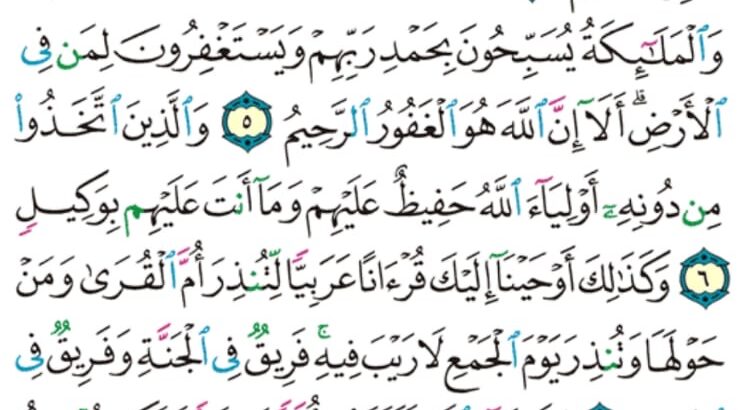 وَٱلْمَلَـٰٓئِكَةُ يُسَبِّحُونَ بِحَمْدِ رَبِّهِمْ وَيَسْتَغْفِرُونَ لِمَن فِى
ٱلْأَرْضِ ۗ أَلَآ إِنَّ ٱللَّهَ هُوَ ٱلْغَفُورُ ٱلرَّحِيمُ ٥ وَٱلَّذِينَ ٱتَّخَذُوا۟
مِن دُونِهِۦٓ أَوْلِيَآءَ ٱللَّهُ حَفِيظٌ عَلَيْهِمْ وَمَآ أَنتَ عَلَيْهِم بِوَكِيلٍ
٦ وَكَذَٰلِكَ أَوْحَيْنَآ إِلَيْكَ قُرْءَانًا عَرَبِيًّا لِّتُنذِرَ أُمَّ ٱلْقُرَىٰ وَمَنْ
حَوْلَهَا وَتُنذِرَ يَوْمَ ٱلْجَمْعِ لَا رَيْبَ فِيهِ ۚ فَرِيقٌ فِى ٱلْجَنَّةِ وَفَرِيقٌ فِى